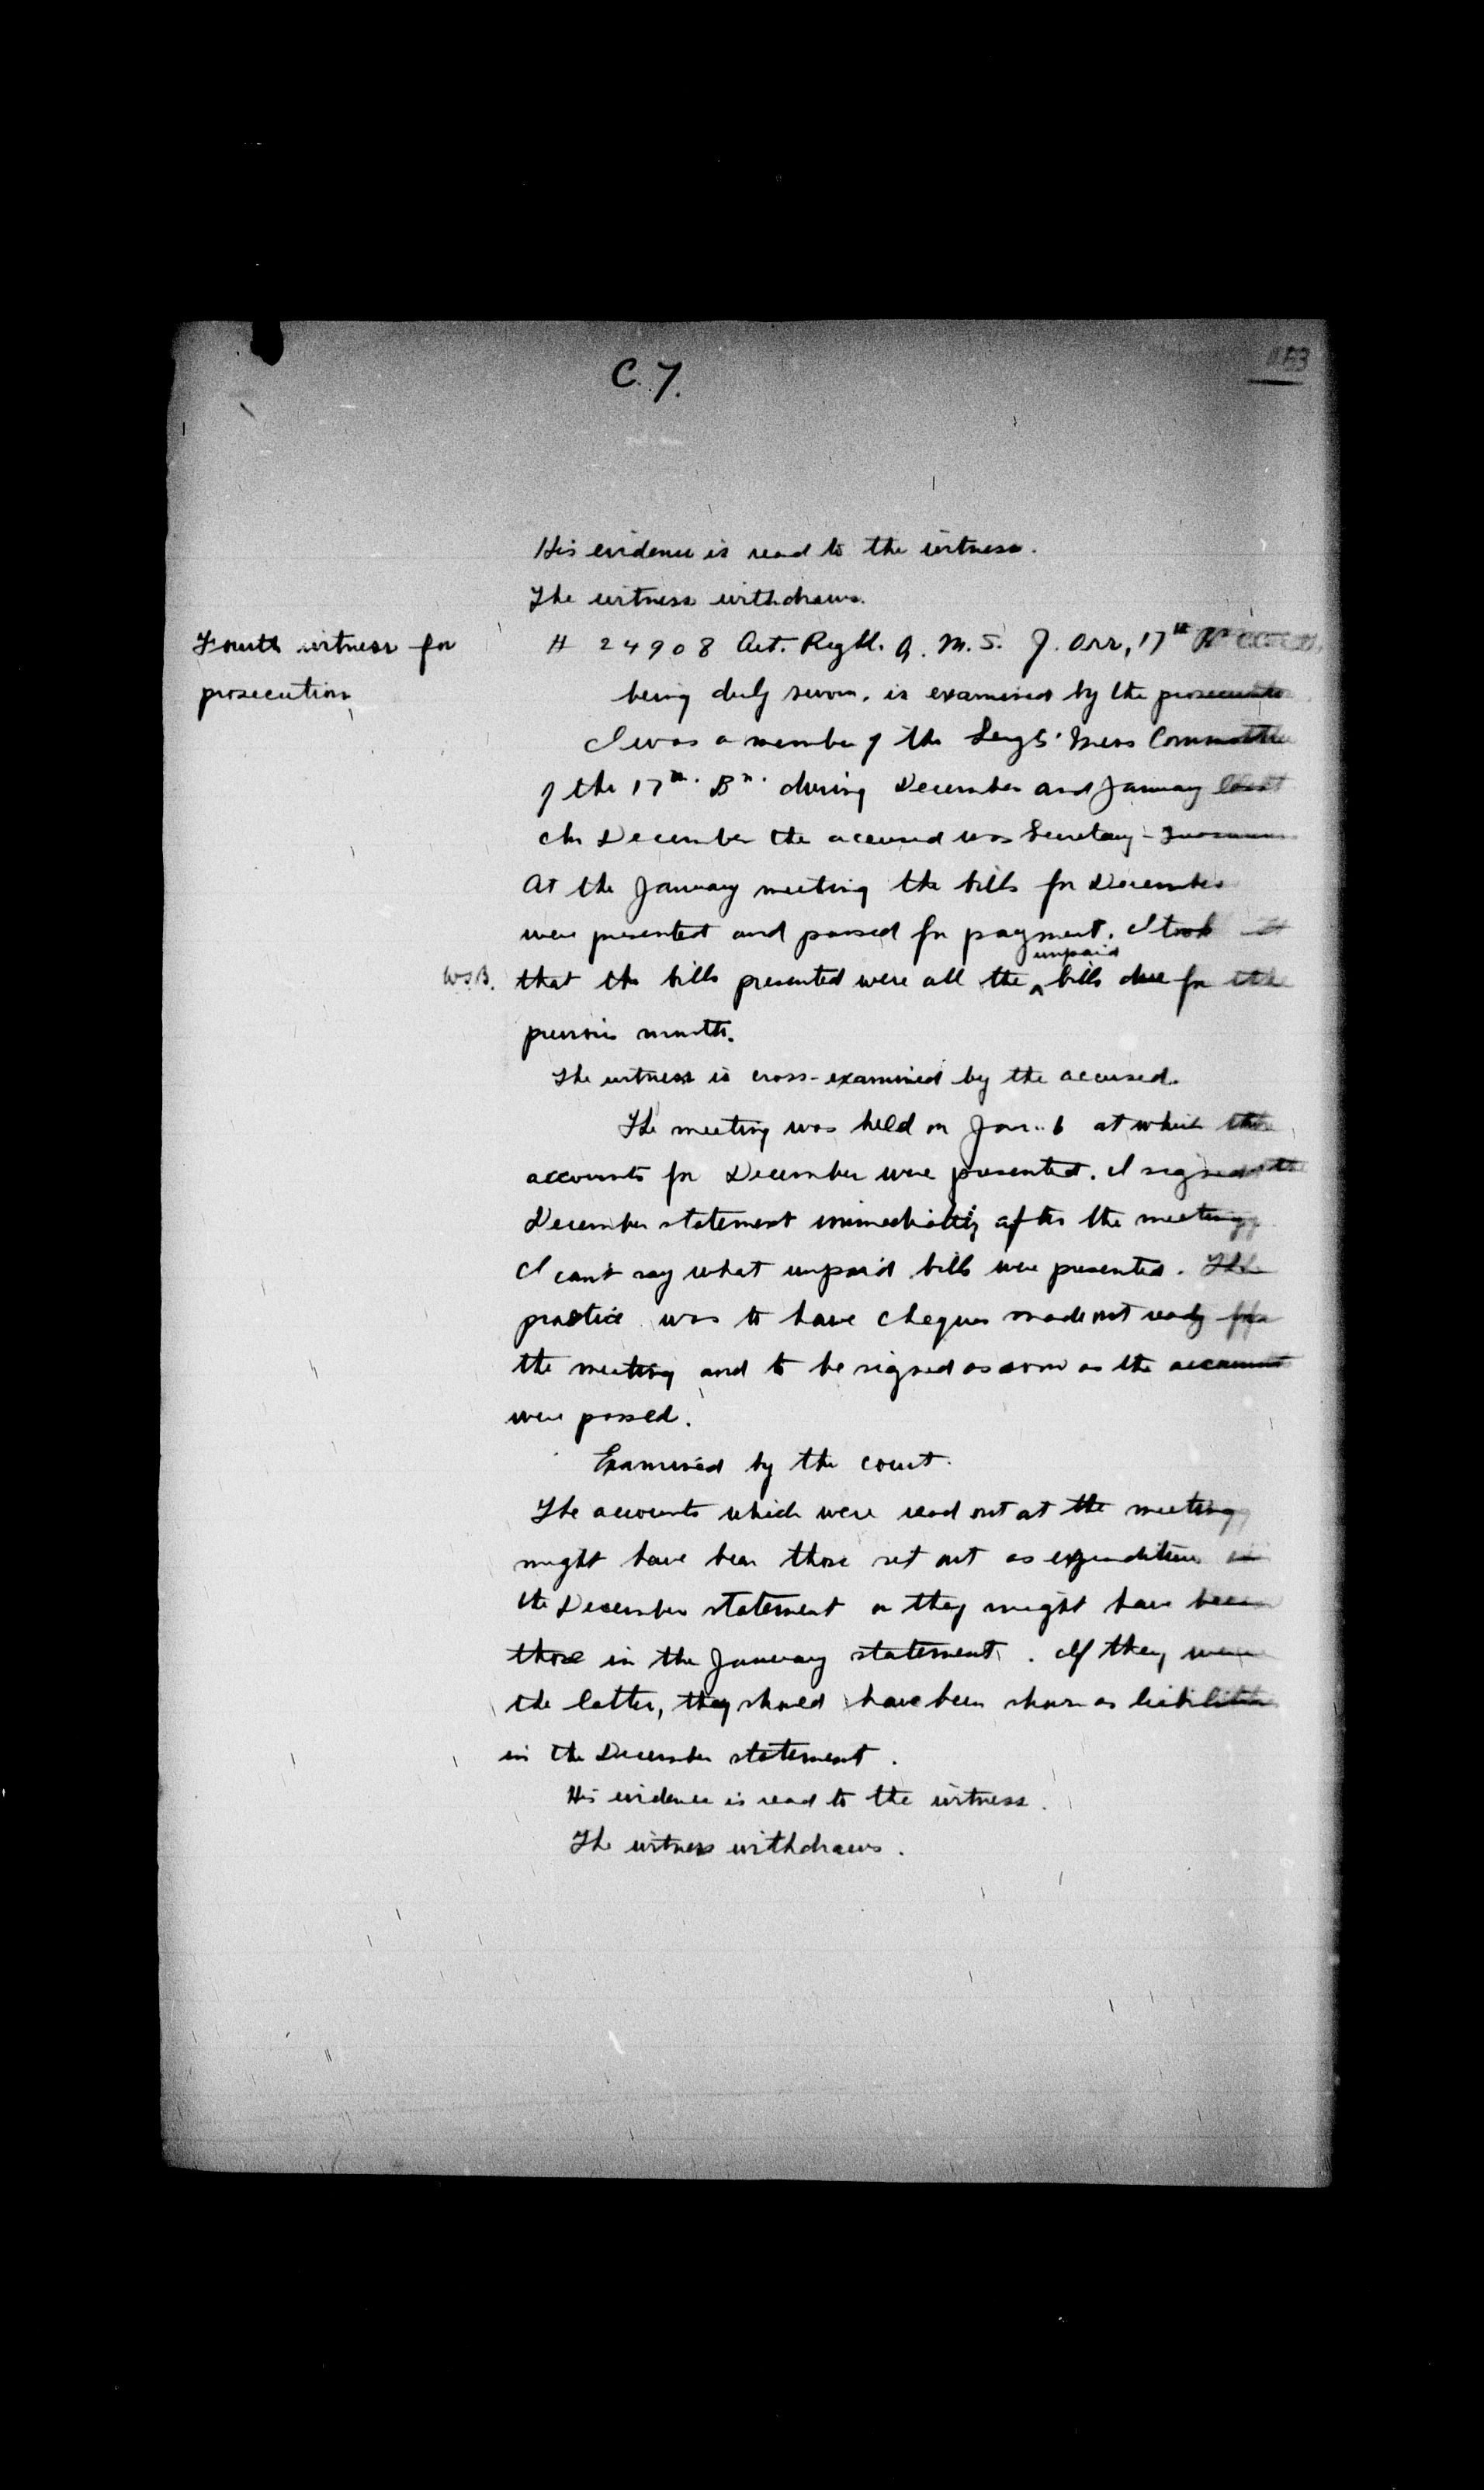 C.7.
His evidence is read to the witness.
The witness withdraws.
Fourth witness for
prosecution
H 24908 Act. Regtl. Q.M.S. J. Orr, 17th Bn
being duly sworn, is examined by the prosecutor
I was a member of the Sergts' Mess Committee
of the 17th. Bn. during December and January last
In December the accused was Secretary-Treasurer
At the January meeting the bills for December
were presented and passed for payment. I took it
W.S.B. that the bills presented were all the unpaid bills due for the
previous month.
The witness is cross-examined by the accused.
The meeting was held on Jan. 6 at which the
accounts for December were presented. I signed the
December statement immediately after the meeting
I can't say what unpaid bills were presented. The
practice was to have cheques made out ready for
the meeting and to be signed as soon as the accounts
were passed.
Examined by the court.
The accounts which were read out at the meeting
might have been those set out as expenditure in
the December statement or they might have been
those in the January statement. If they were
the latter, they should have been shown as liabilities
in the December statement.
His evidence is read to the witness.
The witness withdraws.